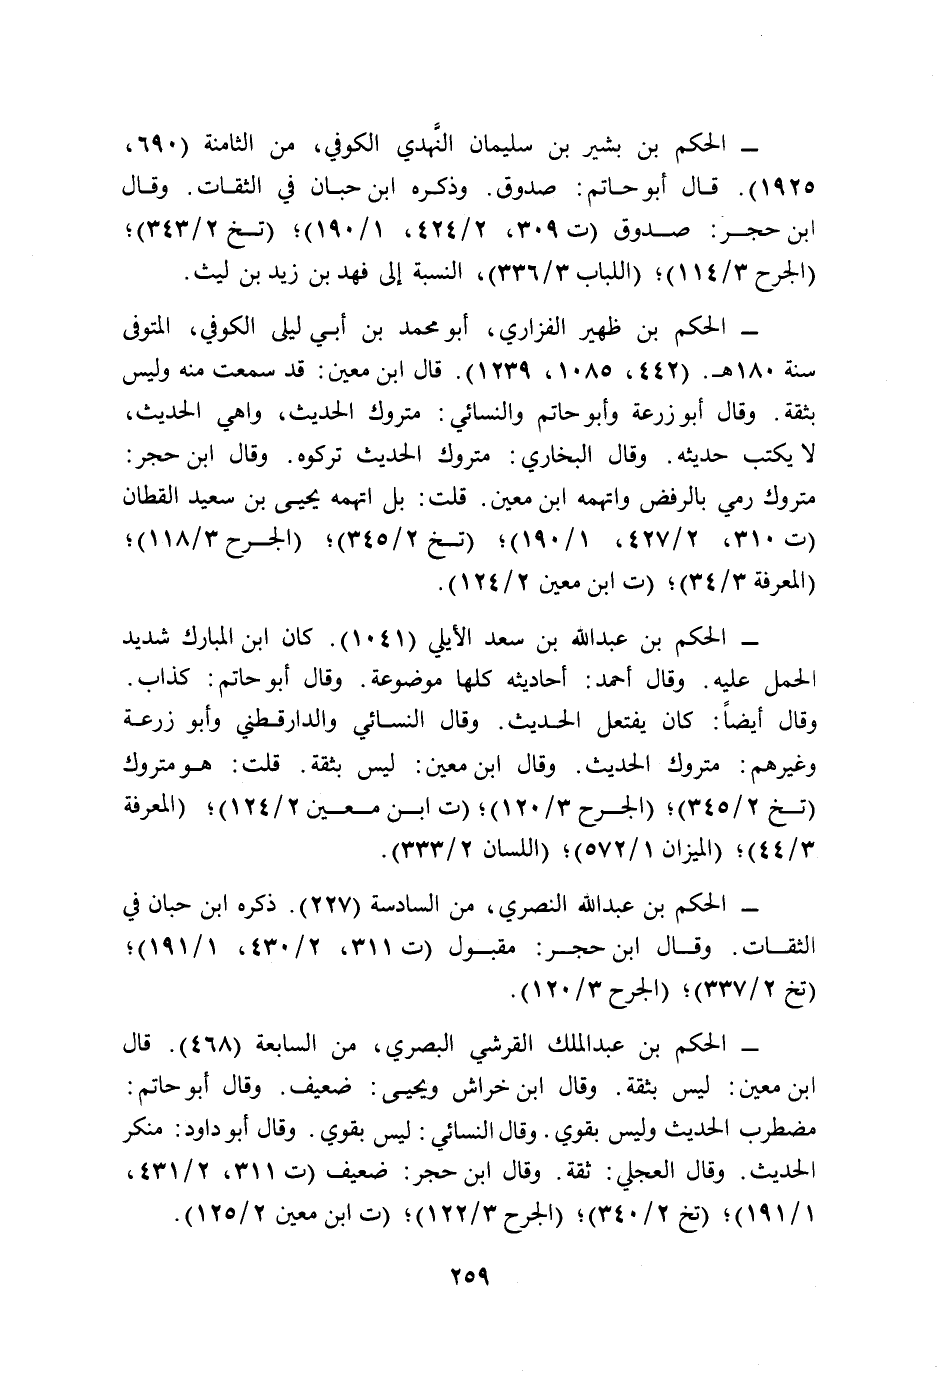 ـ الحكم بن بشير بن سليمان النَّهدي الكوفي، من الثامنة (٦٩٠،
١٩٢٥). قال أبو حاتم: صدوق. وذكره ابن حبان في الثقات. وقال
ابن حجر: صدوق (ت ٣٠٩، ٤٢٤/٢، ١٩٠/١)؛ (تخ ٣٤٣/٢)؛
(الجرح ١١٤/٣)؛ (اللباب ٣٣٦/٣)، النسبة إلى فهد بن زيد بن ليث.
ـ الحكم بن ظهير الفزاري، أبو محمد بن أبي ليلى الكوفي، المتوفى
سنة ١٨٠هـ. (٤٤٢، ١٠٨٥، ١٢٣٩). قال ابن معين: قد سمعت منه وليس
بثقة. وقال أبو زرعة وأبو حاتم والنسائي: متروك الحديث، واهي الحديث،
لا يكتب حديثه. وقال البخاري: متروك الحديث تركوه. وقال ابن حجر:
متروك رمي بالرفض واتهمه ابن معين. قلت: بل اتهمه يحيى بن سعيد القطان
(ت ٣١٠، ٤٢٧/٢، ١٩٠/١)؛ (تخ ٣٤٥/٢)؛ (الجرح ١١٨/٣)؛
(المعرفة ٣٤/٣)؛ (ت ابن معين ١٢٤/٢).
ـ الحكم بن عبدالله بن سعد الأيلي (١٠٤١). كان ابن المبارك شديد
الحمل عليه. وقال أحمد: أحاديثه كلها موضوعة. وقال أبو حاتم: كذاب.
وقال أيضاً: كان يفتعل الحديث. وقال النسائي والدارقطني وأبو زرعة
وغيرهم: متروك الحديث. وقال ابن معين: ليس بثقة. قلت: هو متروك
(تخ ٣٤٥/٢)؛ (الجرح ١٢٠/٣)؛ (ت ابن معين ١٢٤/٢)؛ (المعرفة
٤٤/٣)؛ (الميزان ٥٧٢/١)؛ (اللسان ٣٣٣/٢).
ـ الحكم بن عبدالله النصري، من السادسة (٢٢٧). ذكره ابن حبان في
الثقات. وقال ابن حجر: مقبول (ت ٣١١، ٤٣٠/٢، ١٩١/١)؛
(تخ ٣٣٧/٢)؛ (الجرح ١٢٠/٣).
ـ الحكم بن عبدالملك القرشي البصري، من السابعة (٤٦٨). قال
ابن معين: ليس بثقة. وقال ابن خراش ويحيى: ضعيف. وقال أبو حاتم:
مضطرب الحديث وليس بقوي. وقال النسائي: ليس بقوي. وقال أبو داود: منكر
الحديث. وقال العجلي: ثقة. وقال ابن حجر: ضعيف (ت ٣١١، ٤٣١/٢،
١٩١/١)؛ (تخ ٣٤٠/٢)؛ (الجرح ١٢٢/٣)؛ (ت ابن معين ١٢٥/٢).
٢٥٩